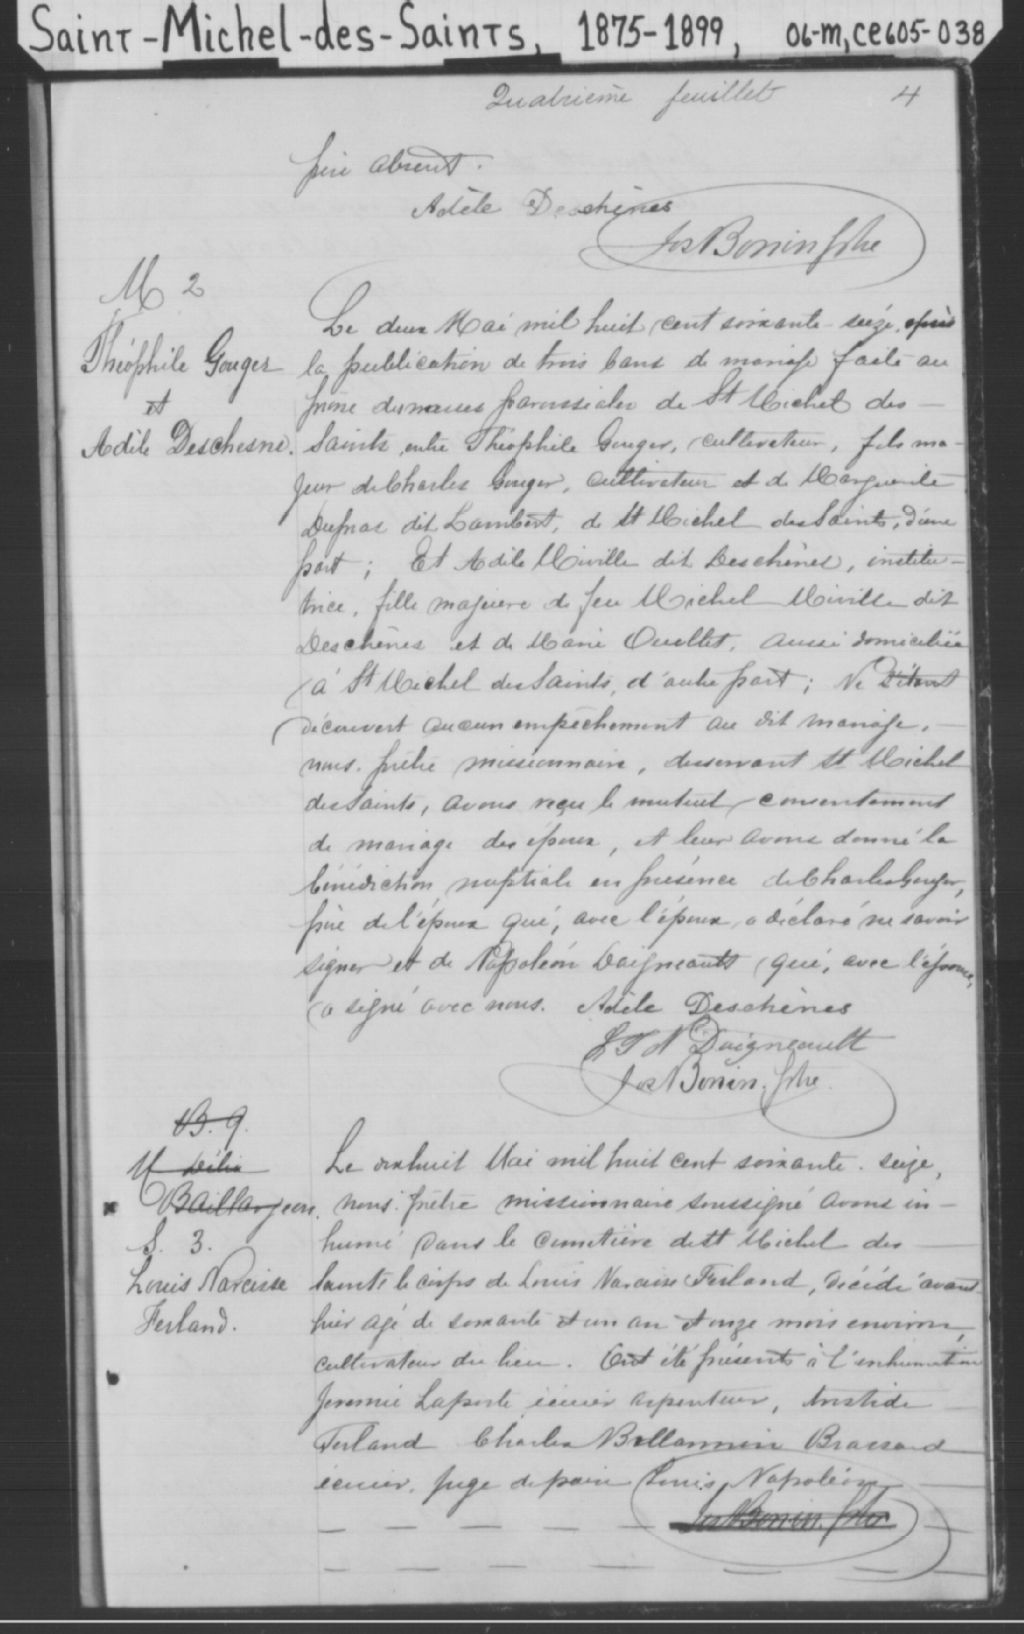 Saint-Michel-des-Saints, 1875-1899, 06-M, CE605-038
Quatrième feuillet 4
père absent.
Adèle Deschènes
Jos Bonin Ptre
M 2
Théophile Gouger
et
Adèle Deschesne.
Le deux Mai mil huit cent soixante-seize, après
la publication de trois bans de mariage faite au
prône des messes paroissiales de St Michel des
Saints, entre Théophile Gouger, cultivateur, fils ma-
jeur de Charles Gouger, cultivateur et de Marguerite
Dufras dit Lambert, de St Michel des Saints, d'une
part ; Et Adèle Miville dit Deschènes, institu-
trice, fille majeure de feu Michel Miville dit
Deschènes et de Marie Ouellet, aussi domiciliée
à St Michel des Saints, d'autre part ; Ne s'étant
découvert aucun empêchement au dit mariage,
nous, prêtre missionnaire, desservant St Michel
des Saints, avons reçu le mutuel consentement
de mariage des époux, et leur avons donné la
bénédiction nuptiale en présence de Charles Gouger,
père de l'époux qui, avec l'époux a déclaré ne savoir
signer et de Napoléon Daigneault qui, avec l'épouse,
a signé avec nous. Adèle Deschènes
N Daigneault
Jos Bonin. Ptre.
B. 9.
M Délia
Baillargeon.
S. 3.
Louis Narcisse
Ferland.
Le dix huit Mai mil huit cent soixante-seize,
nous prêtre missionnaire soussigné avons in-
humé dans le cimetière de St Michel des
Saints le corps de Louis Narcisse Ferland, décédé avant
hier agé de soixante et un an et onze mois environ,
cultivateur du lieu. Ont été présents à l'inhumation
Jeremie Laporte écuier arpenteur, Aristide
Ferland Charles Bellarmin Brassard
écuier, juge de paix Louis Napoléon
Jos Bonin Ptre